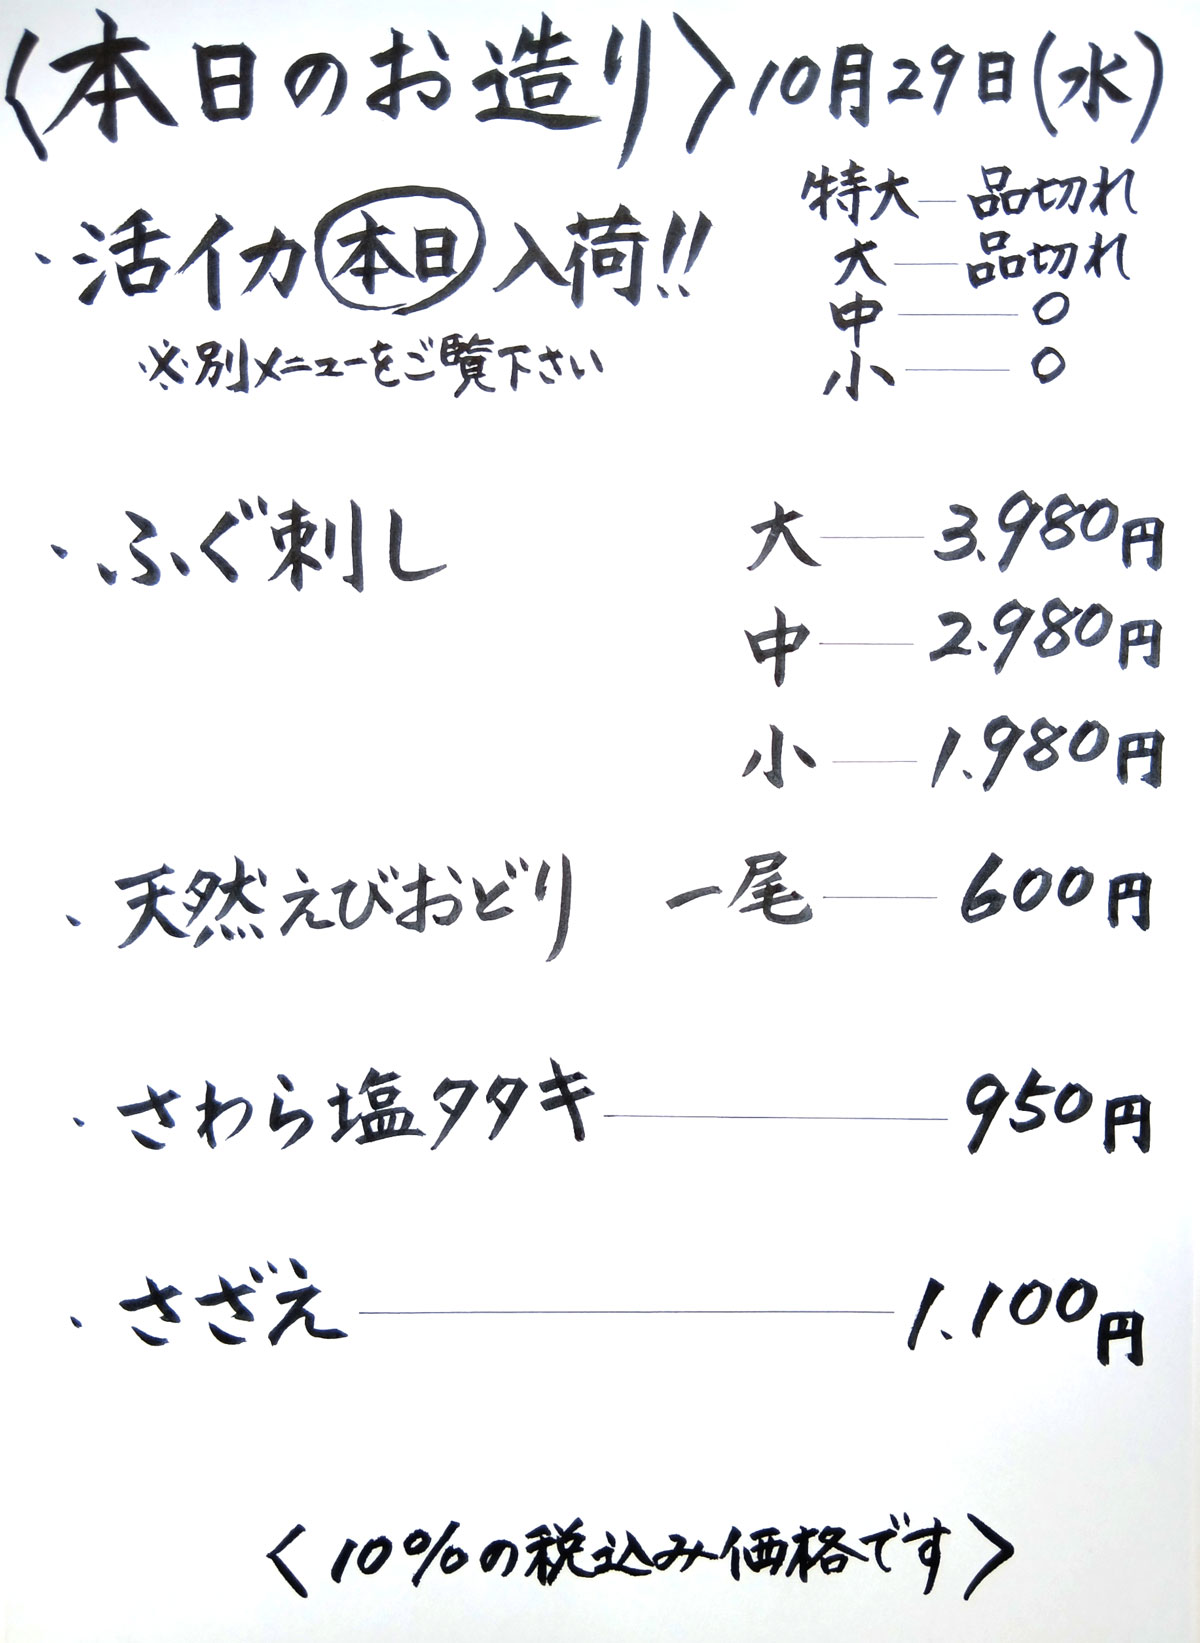 〈本日のお造り〉10月29日(水)
・活イカ 本日 入荷!!
※別メニューをご覧下さい
特大―品切れ
大―品切れ
中―○
小―○
・ふぐ刺し 大―3.980円
中―2.980円
小―1.980円
・天然えびおどり 一尾―600円
・さわら塩タタキ―950円
・さざえ―1.100円
〈10%の税込み価格です〉